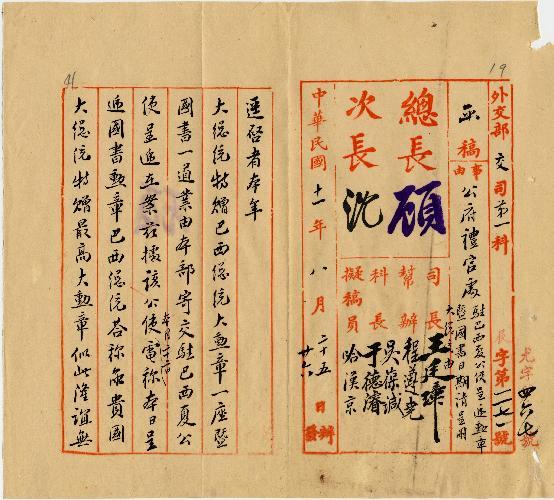 19
外交部 交司第一科 長字第一二七一號
光字四六七號
函稿
事由 公府禮官處
駐巴西夏公使呈遞勳章
暨國書日期請呈明
大總統由
總長 顧
次長 沈
司長 王廷璋
幫辦 程遵堯
吳葆諴
科長 于德濬
擬稿員 哈漢京
中華民國十一年八月二十五日辦
廿六 發
41
逕啓者本年
大總統特贈巴西總統大勳章一座暨
國書一道業由本部寄交駐巴西夏公
使呈遞在案茲據該公使電稱本日呈
遞國書勳章巴西總統答稱承貴國
大總統特贈最高大勳章似此隆誼無